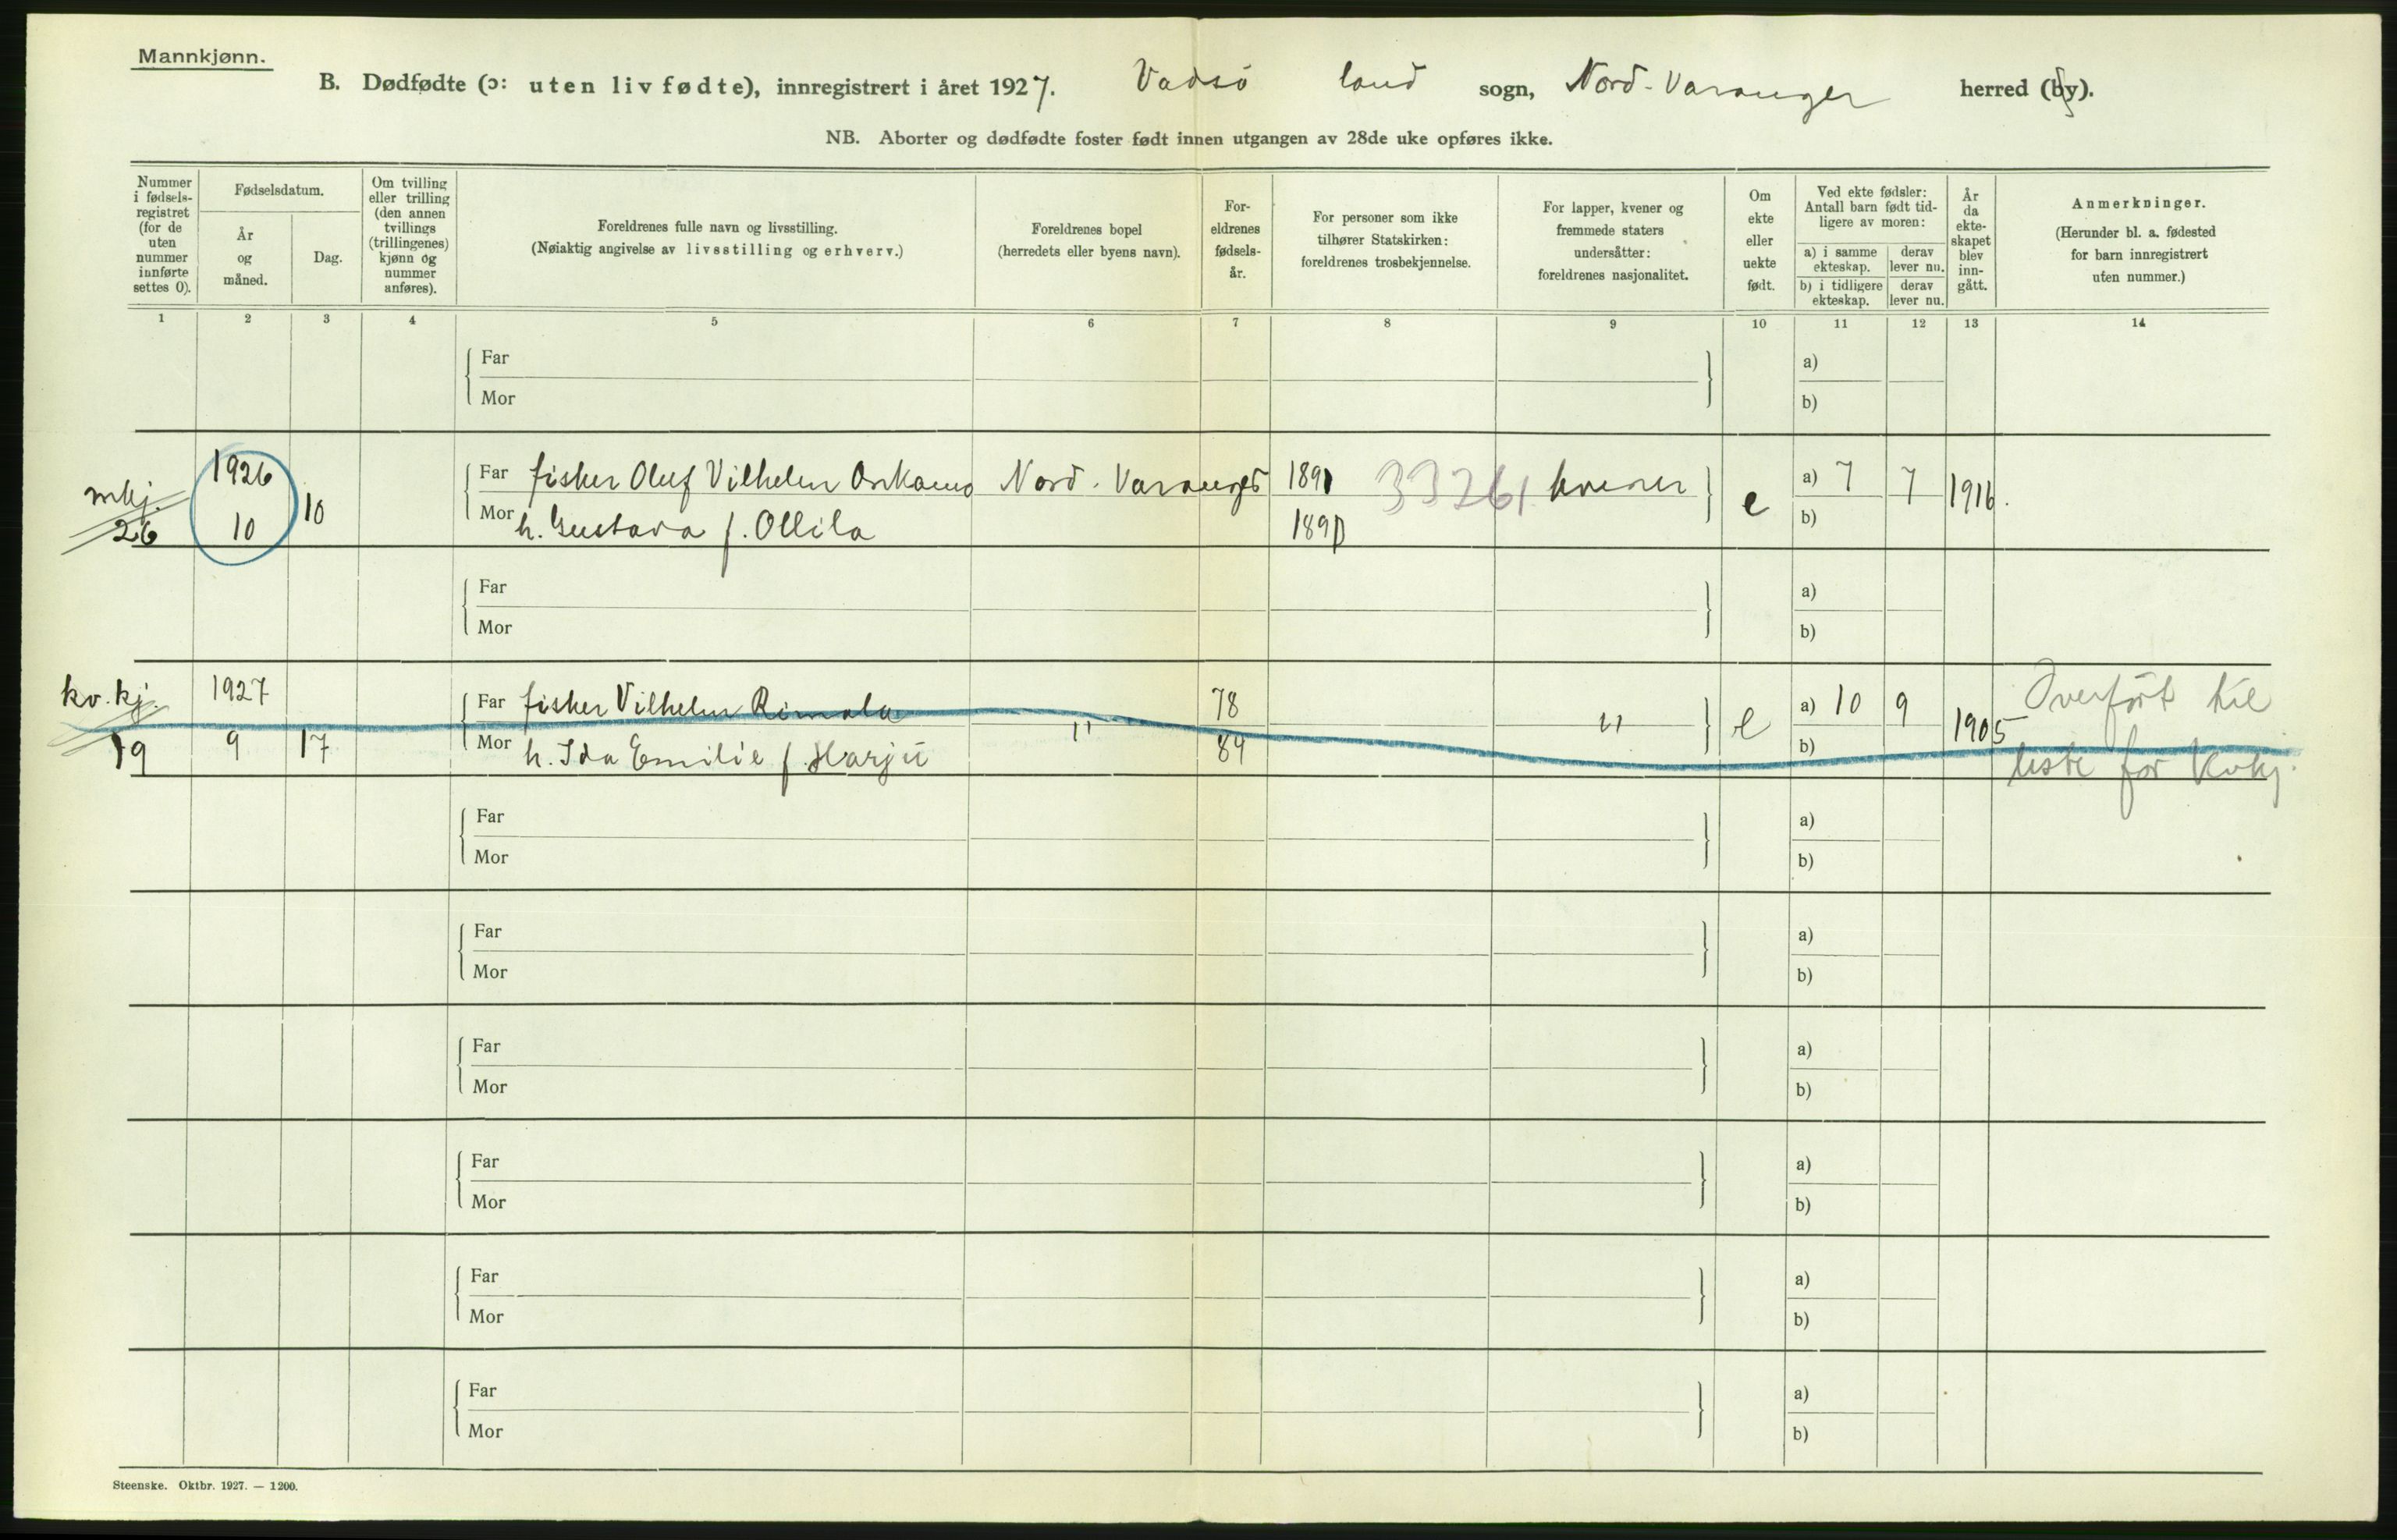 Mannkjønn.
B. Dødfødte (ɔ: uten liv fødte), innregistrert i året 1927. Vadsö land sogn, Nord-Varanger herred (by).
NB. Aborter og dødfødte foster født innen utgangen av 28de uke opføres ikke.
Nummer i fødsels-registret (for de uten nummer innførte settes 0).
Fødselsdatum.
År og måned.
Dag.
Om tvilling eller trilling (den annen tvillings (trillingenes) kjønn og nummer anføres).
Foreldrenes fulle navn og livsstilling.
(Nøiaktig angivelse av livsstilling og erhverv.)
Foreldrenes bopel
(herredets eller byens navn).
For-eldrenes fødsels-år.
For personer som ikke tilhører Statskirken: foreldrenes trosbekjennelse.
For lapper, kvener og fremmede staters undersåtter: foreldrenes nasjonalitet.
Om ekte eller uekte født.
Ved ekte fødsler: Antall barn født tid-ligere av moren:
a) i samme ekteskap.
derav lever nu.
b) i tidligere ekteskap.
derav lever nu.
År da ekte-skapet blev inn-gått.
Anmerkninger.
(Herunder bl. a. fødested for barn innregistrert uten nummer.)
1 2 3 4 5 6 7 8 9 10 11 12 13 14
Far a)
Mor b)
mkj. 1926 Far fisker Oluf Vilhelm Nord-Varanger 1891 33261 kvener e a) 7 7 1916.
26 10 10 Mor h. Gustava f. Ollila 1890 b)
Far a)
Mor b)
kv.kj. 1927 Far fisker Vilhelm 78 e a) 10 9 1905 Overført til
19 9 17 Mor h. Ida Emilie f. Harju " 84 " b) liste for Kvkj.
Far a)
Mor b)
Far a)
Mor b)
Far a)
Mor b)
Far a)
Mor b)
Far a)
Mor b)
Far a)
Mor b)
Steenske. Oktbr. 1927. — 1200.